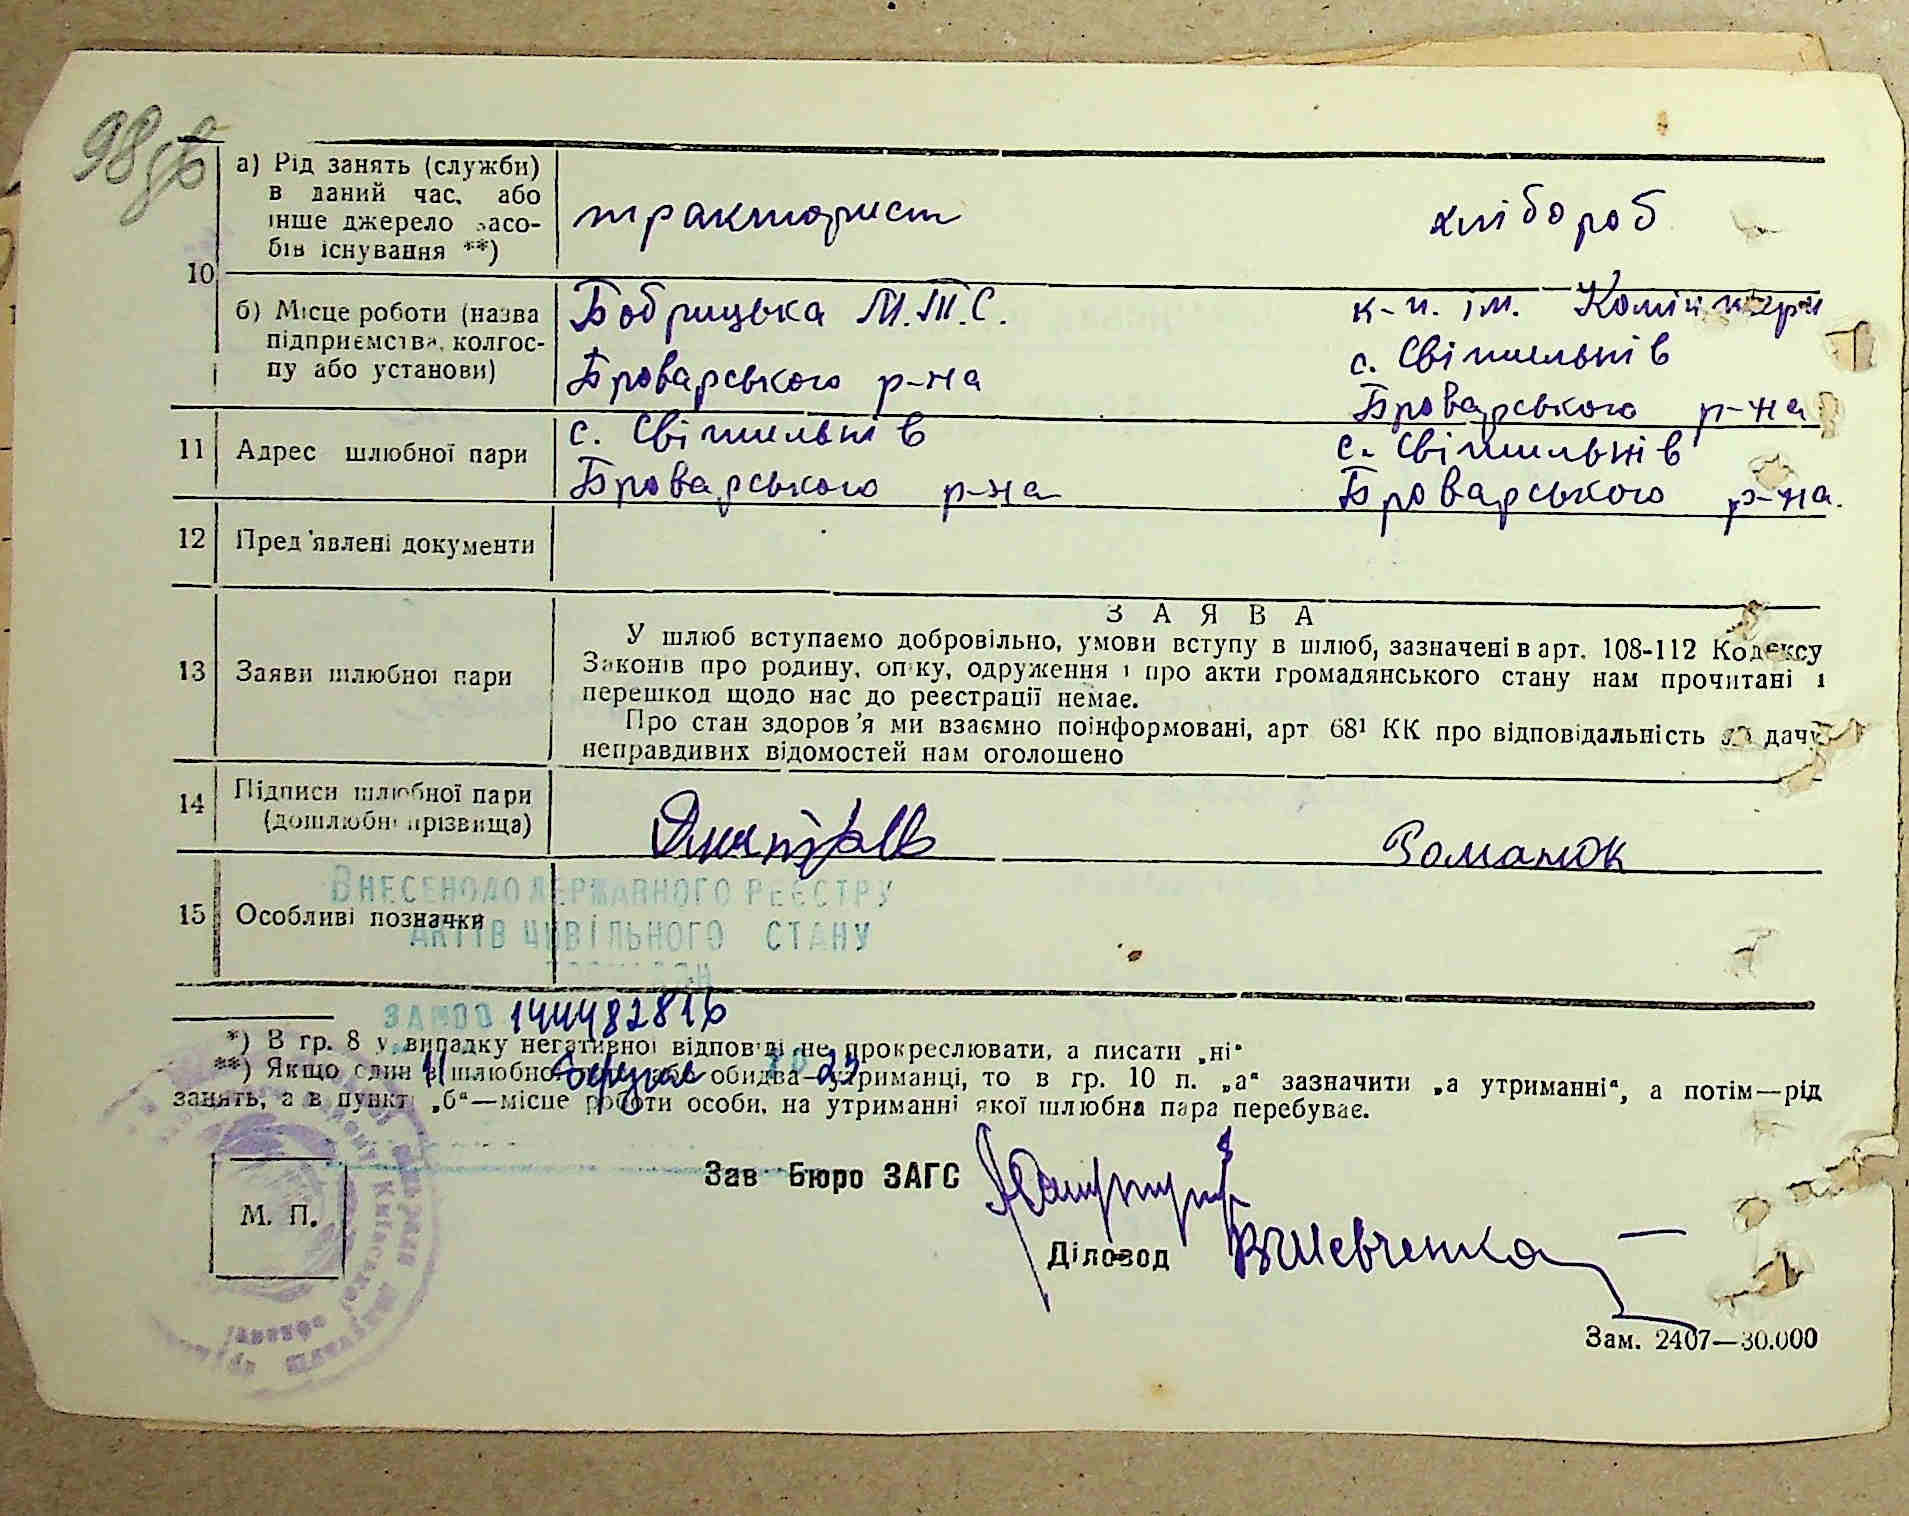 98
а) Рід занять (служби)
в даний час, або
інше джерело засо-
бів існування **)
тракторист
хлібороб
10
б) Місце роботи (назва
підприємства, колгос-
пу або установи)
Бобрицька М.Т.С.
Броварського р-на
к-п. ім. Комінтерн
с. Світильнів
Броварського р-на
11 Адрес шлюбної пари
с. Світильнів
Броварського р-на
с. Світильнів
Броварського р-на.
12 Пред'явлені документи
13 Заяви шлюбної пари
ЗАЯВА
У шлюб вступаємо добровільно, умови вступу в шлюб, зазначені в арт. 108-112 Кодексу
Законів про родину, опіку, одруження і про акти громадянського стану нам прочитані і
перешкод щодо нас до реєстрації немає.
Про стан здоров'я ми взаємно поінформовані, арт 68¹ КК про відповідальність за дачу
неправдивих відомостей нам оголошено
14 Підписи шлюбної пари
(дошлюбні прізвища)
Романюк
15 Особливі позначки
ВНЕСЕНО ДО ДЕРЖАВНОГО РЕЄСТРУ
АКТІВ ЦИВІЛЬНОГО СТАНУ
ГРОМАДЯН
ЗА №00 144482816
*) В гр. 8 у випадку негативної відповіді не прокреслювати, а писати „ні"
**) Якщо один з шлюбної пари або обидва—утриманці, то в гр. 10 п. „а" зазначити „а утриманні", а потім—рід
занять, а в пункті „б"—місце роботи особи, на утриманні якої шлюбна пара перебуває.
11 20 23
М. П.
Зав Бюро ЗАГС
Діловод
В Шевченко
Зам. 2407—30.000